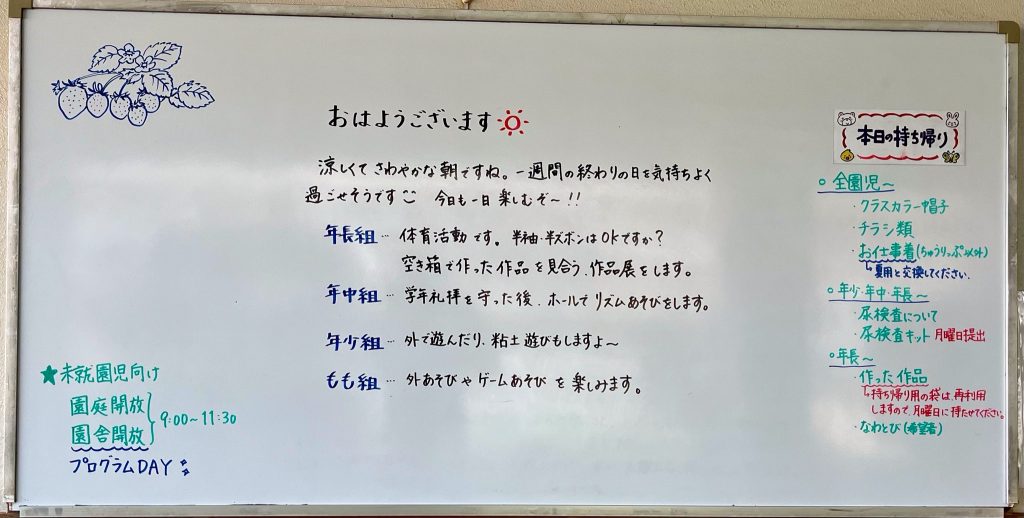 おはようございます
涼しくてさわやかな朝ですね。一週間の終わりの日を気持ちよく
過ごせそうです 今日も一日楽しむぞ〜!!
年長組… 体育活動です。半袖・半ズボンはOKですか?
空き箱で作った作品を見合う、作品展をします。
年中組… 学年礼拝を守った後、ホールでリズムあそびをします。
年少組… 外で遊んだり、粘土遊びもしますよ〜
もも組… 外あそびやゲームあそびを楽しみます。
★未就園児向け
園庭開放
園舎開放
9:00〜11:30
プログラムDAY
本日の持ち帰り
○全園児〜
・クラスカラー帽子
・チラシ類
・お仕事着(ちゅうりっぷ以外)
↳夏用と交換してください。
○年少・年中・年長〜
・尿検査について
・尿検査キット 月曜日提出
○年長〜
・作った作品
↳持ち帰り用の袋は、再利用
しますので、月曜日に持たせてください。
・なわとび(希望者)